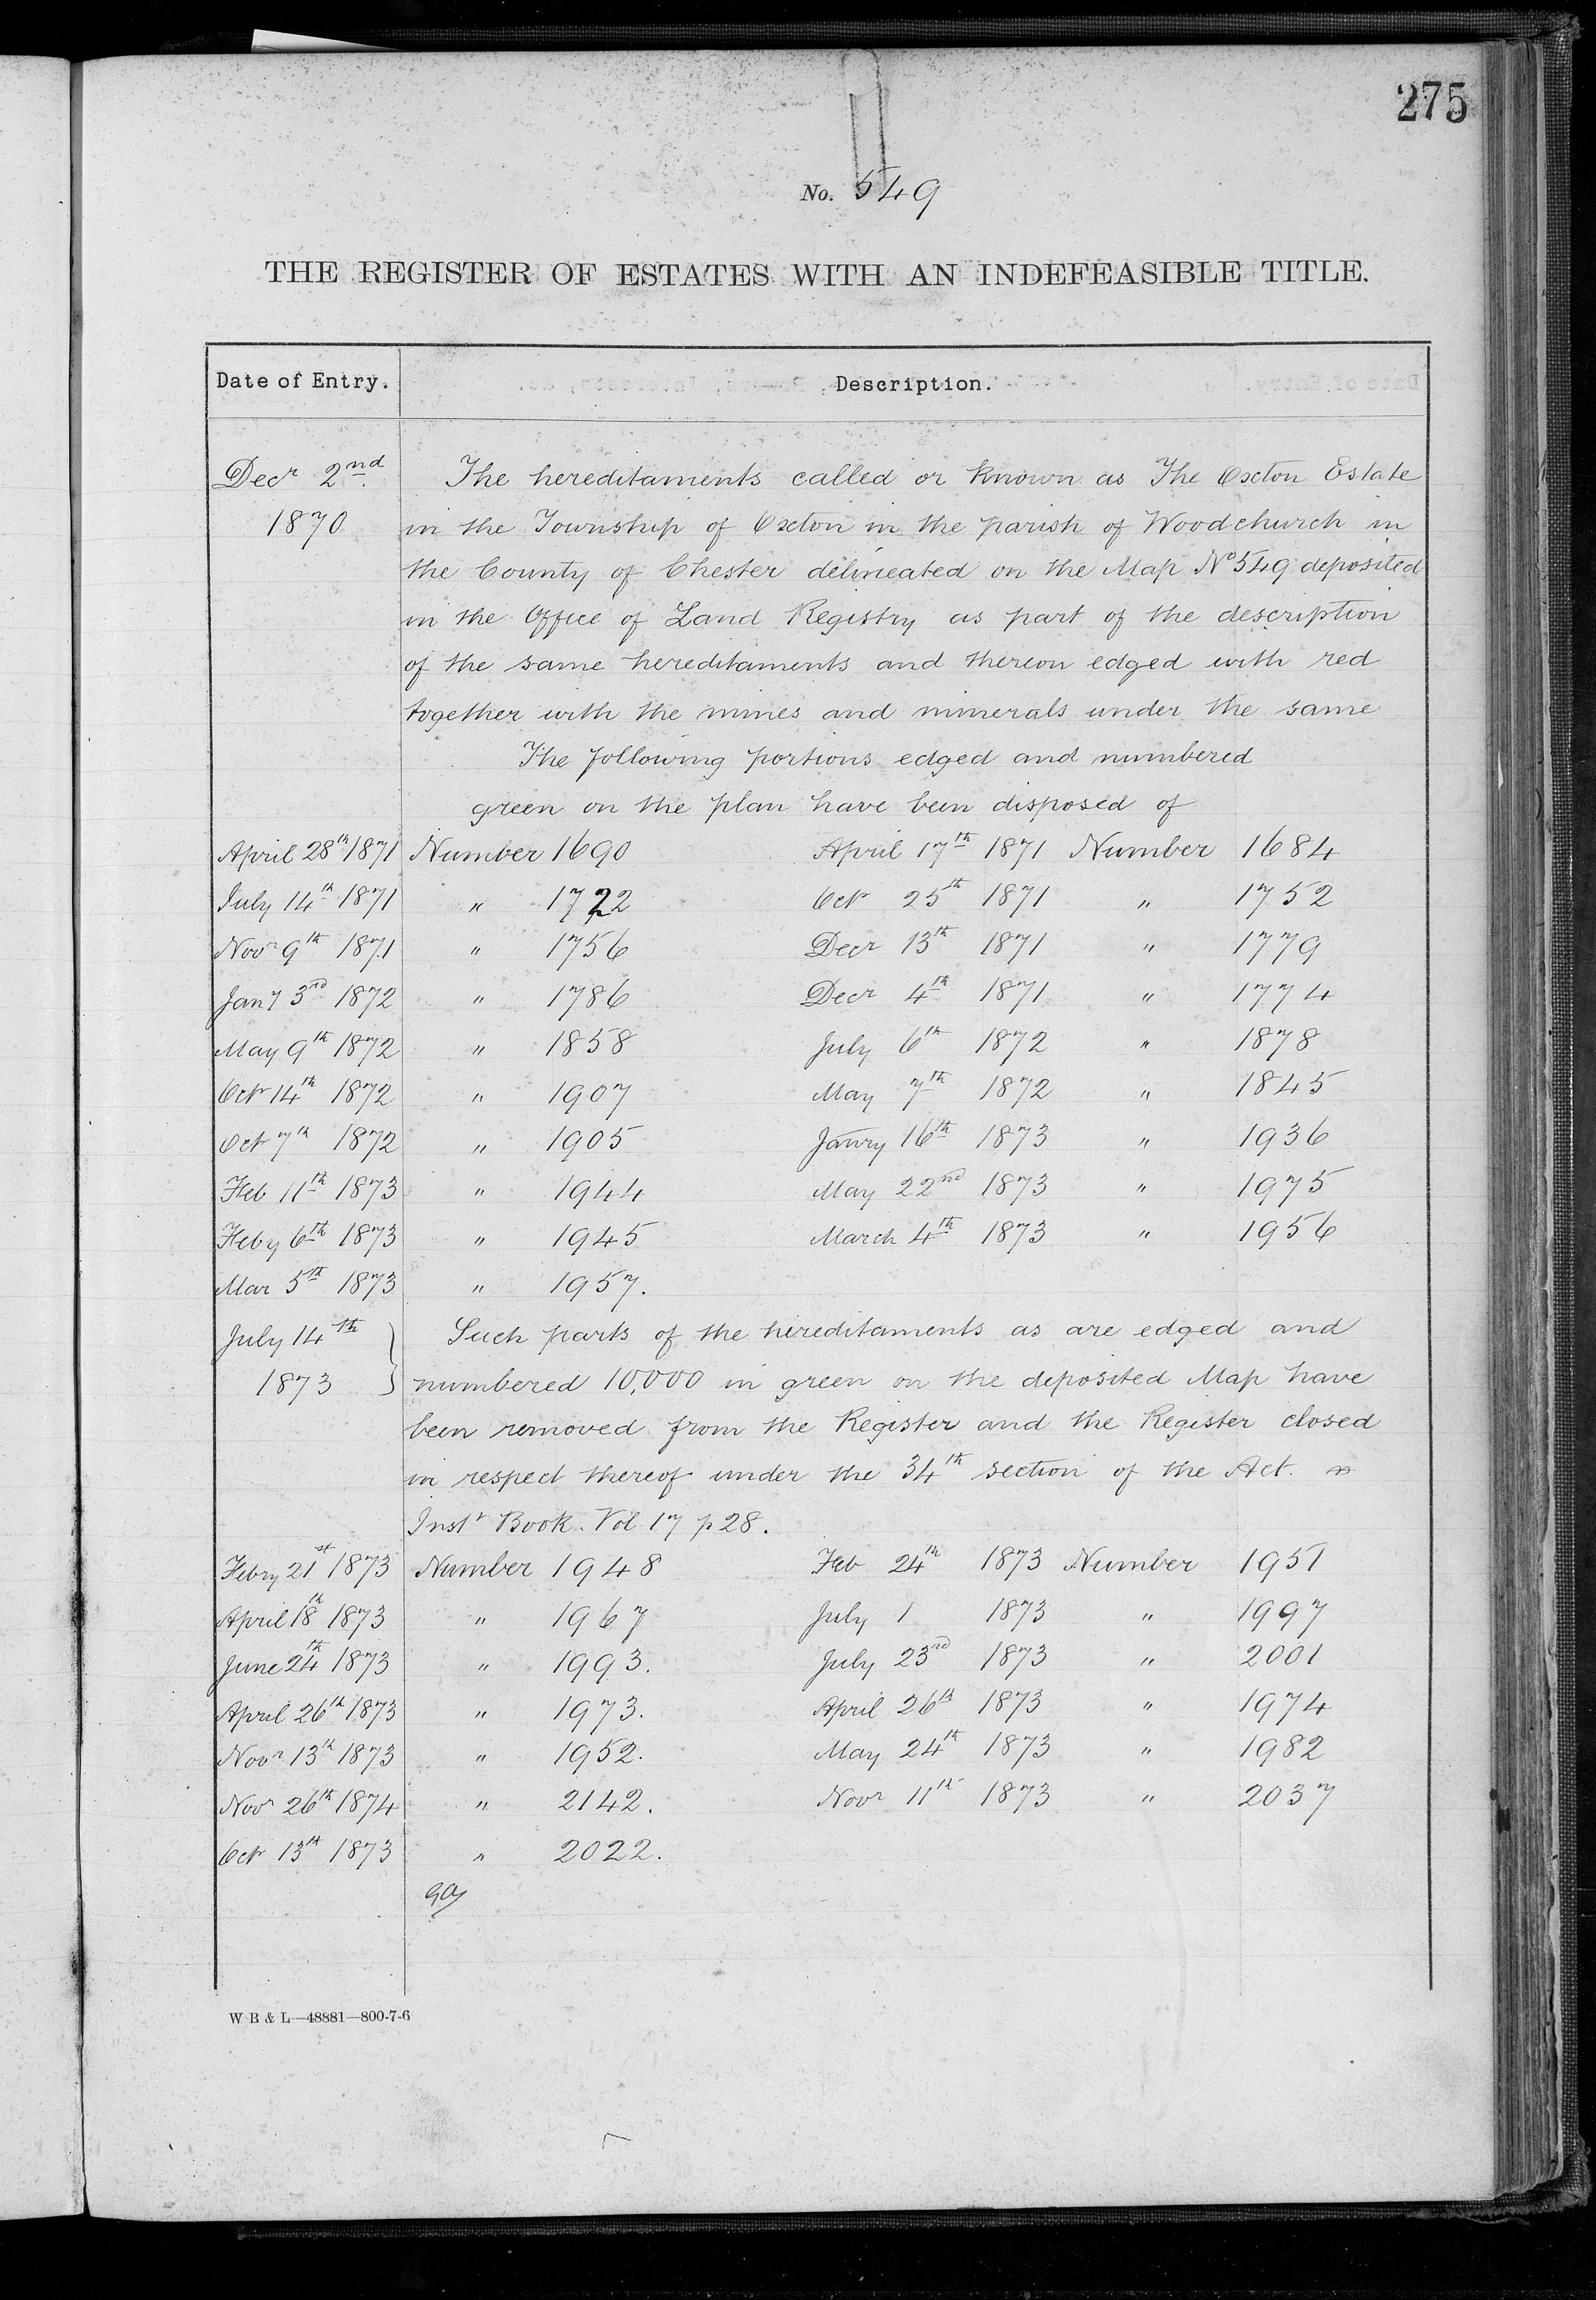 275
No. 549
THE REGISTER OF ESTATES WITH AN INDEFEASIBLE TITLE.
Date of Entry. Description.
Decr 2nd The hereditaments called or known as The Oxton Estate
1870 in the Township of Oxton in the parish of Woodchurch in
the County of Chester delineated on the Map No 549 deposited
in the Office of Land Registry as part of the description
of the same hereditaments and thereon edged with red
together with the mines and minerals under the same
The following portions edged and numbered
green on the plan have been disposed of
April 28th 1871 Number 1690 April 17th 1871 Number 1684
July 14th 1871 " 1722 Oct 25th 1871 " 1752
Novr 9th 1871 " 1756 Decr 13th 1871 " 1779
Jany 3rd 1872 " 1786 Decr 4th 1871 " 1774
May 9th 1872 " 1858 July 6th 1872 " 1878
Oct 14th 1872 " 1907 May 7th 1872 " 1845
Oct 7th 1872 " 1905 Janry 16th 1873 " 1936
Feb 11th 1873 " 1944 May 22nd 1873 " 1975
Feby 6th 1873 " 1945 March 4th 1873 " 1956
Mar 5th 1873 " 1957.
July 14th Such parts of the hereditaments as are edged and
1873 numbered 10,000 in green on the deposited Map have
been removed from the Register and the Register closed
in respect thereof under the 34th section of the Act.
Instr Book. Vol 17 p 28.
Febry 21st 1873 Number 1948 Feb 24th 1873 Number 1951
April 18th 1873 " 1967 July 1 1873 " 1997
June 24th 1873 " 1993. July 23rd 1873 " 2001
April 26th 1873 " 1973. April 26th 1873 " 1974
Novr 13th 1873 " 1952. May 24th 1873 " 1982
Novr 26th 1874 " 2142. Novr 11th 1873 " 2037
Oct 13th 1873 " 2022.
W B & L—48881—800-7-6